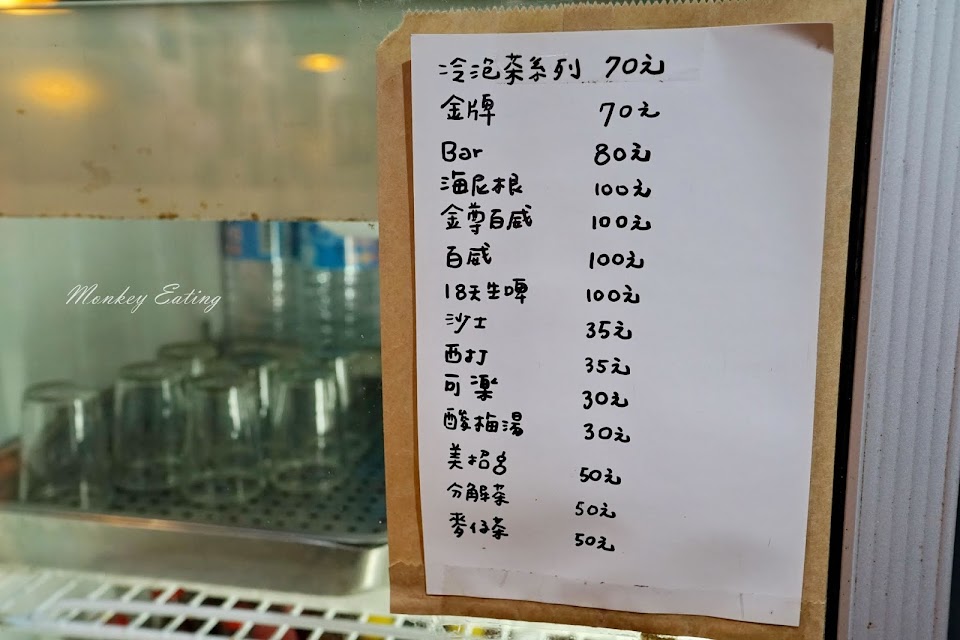 冷泡茶系列 70元
金牌 70元
Bar 80元
海尼根 100元
金尊百威 100元
百威 100元
18天生啤 100元
沙士 35元
西打 35元
可樂 30元
酸梅湯 30元
美招名 50元
分解茶 50元
麥仔茶 50元
Monkey Eating